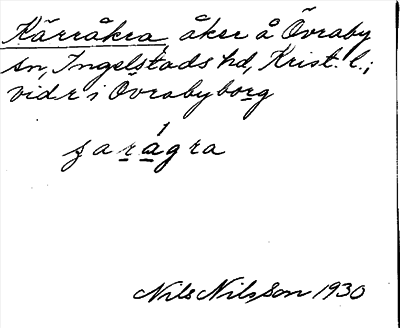 Kärråkra, åker å Övraby
sn, Ingelstads hd, Krist. l.;
vid r i Övrabyborg
1
ʂaragra
Nils Nilsson 1930